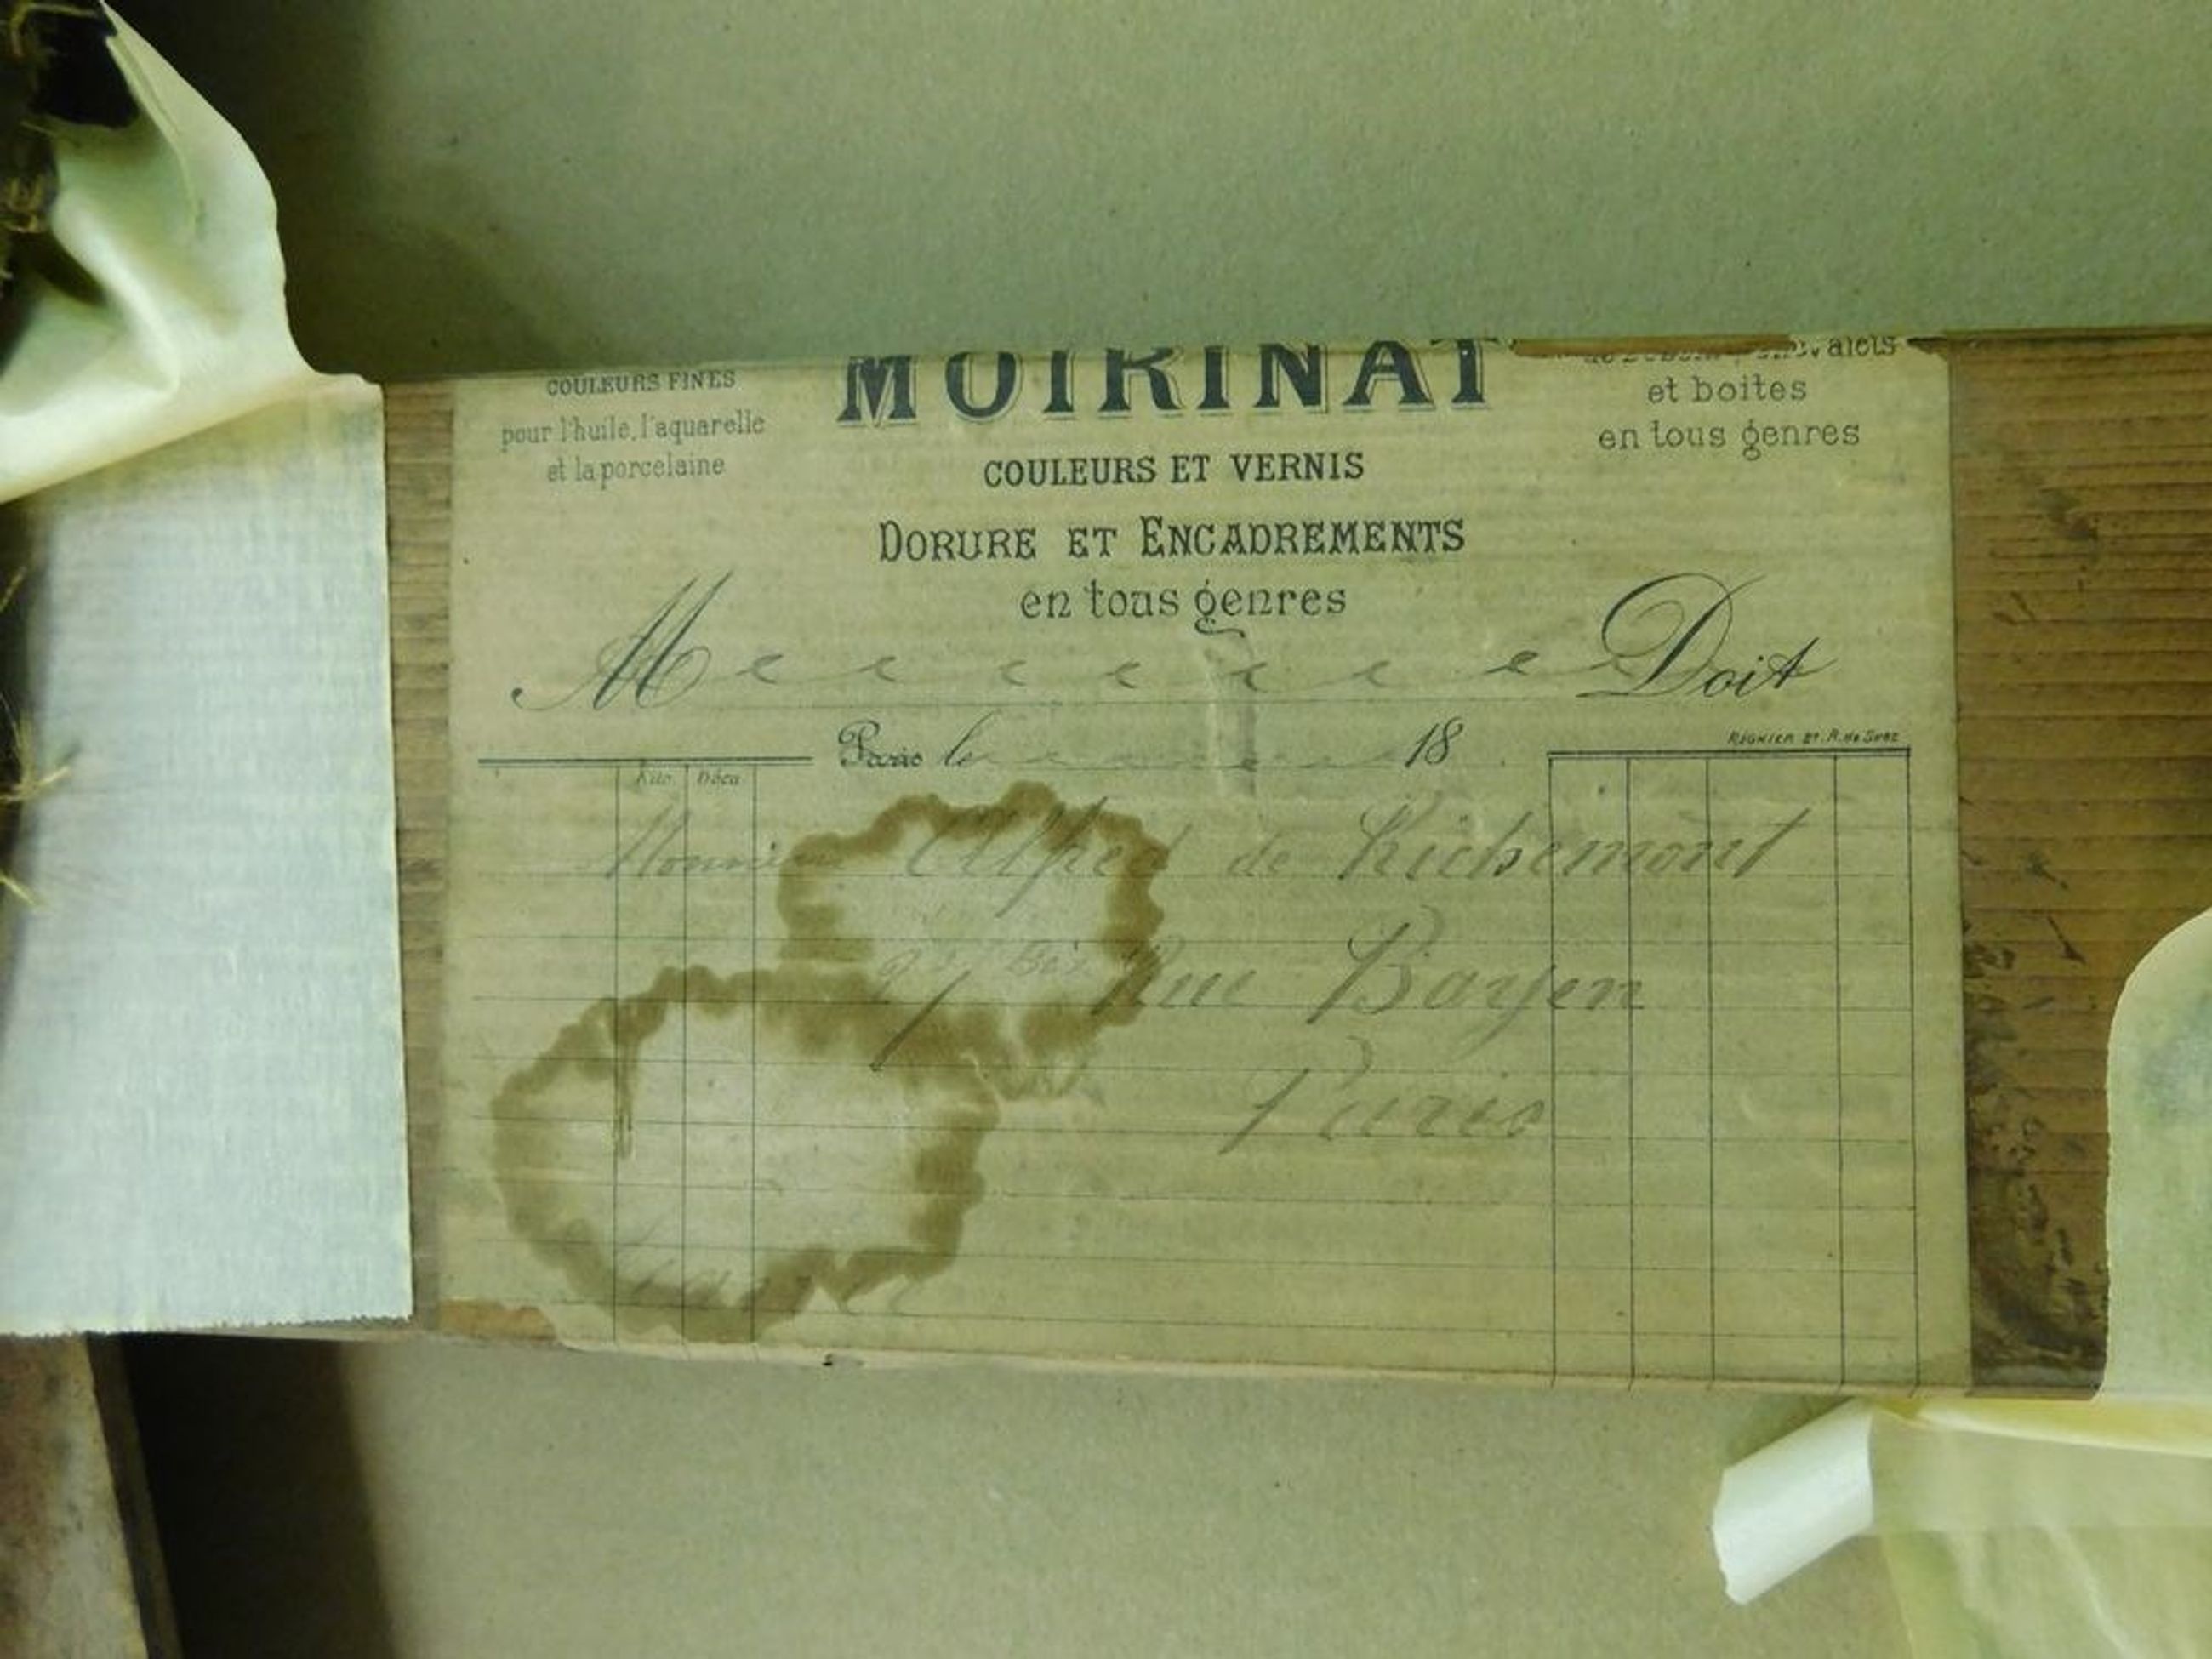 COULEURS FINES
pour l'huile, l'aquarelle
et la porcelaine
MOIRINAT
COULEURS ET VERNIS
DORURE ET ENCADREMENTS
en tous genres
et boites
en tous genres
M Doit
Paris le 18
Kilo. Déca
Monsieur Alfred de Richemont
bis Rue Bayen
Paris